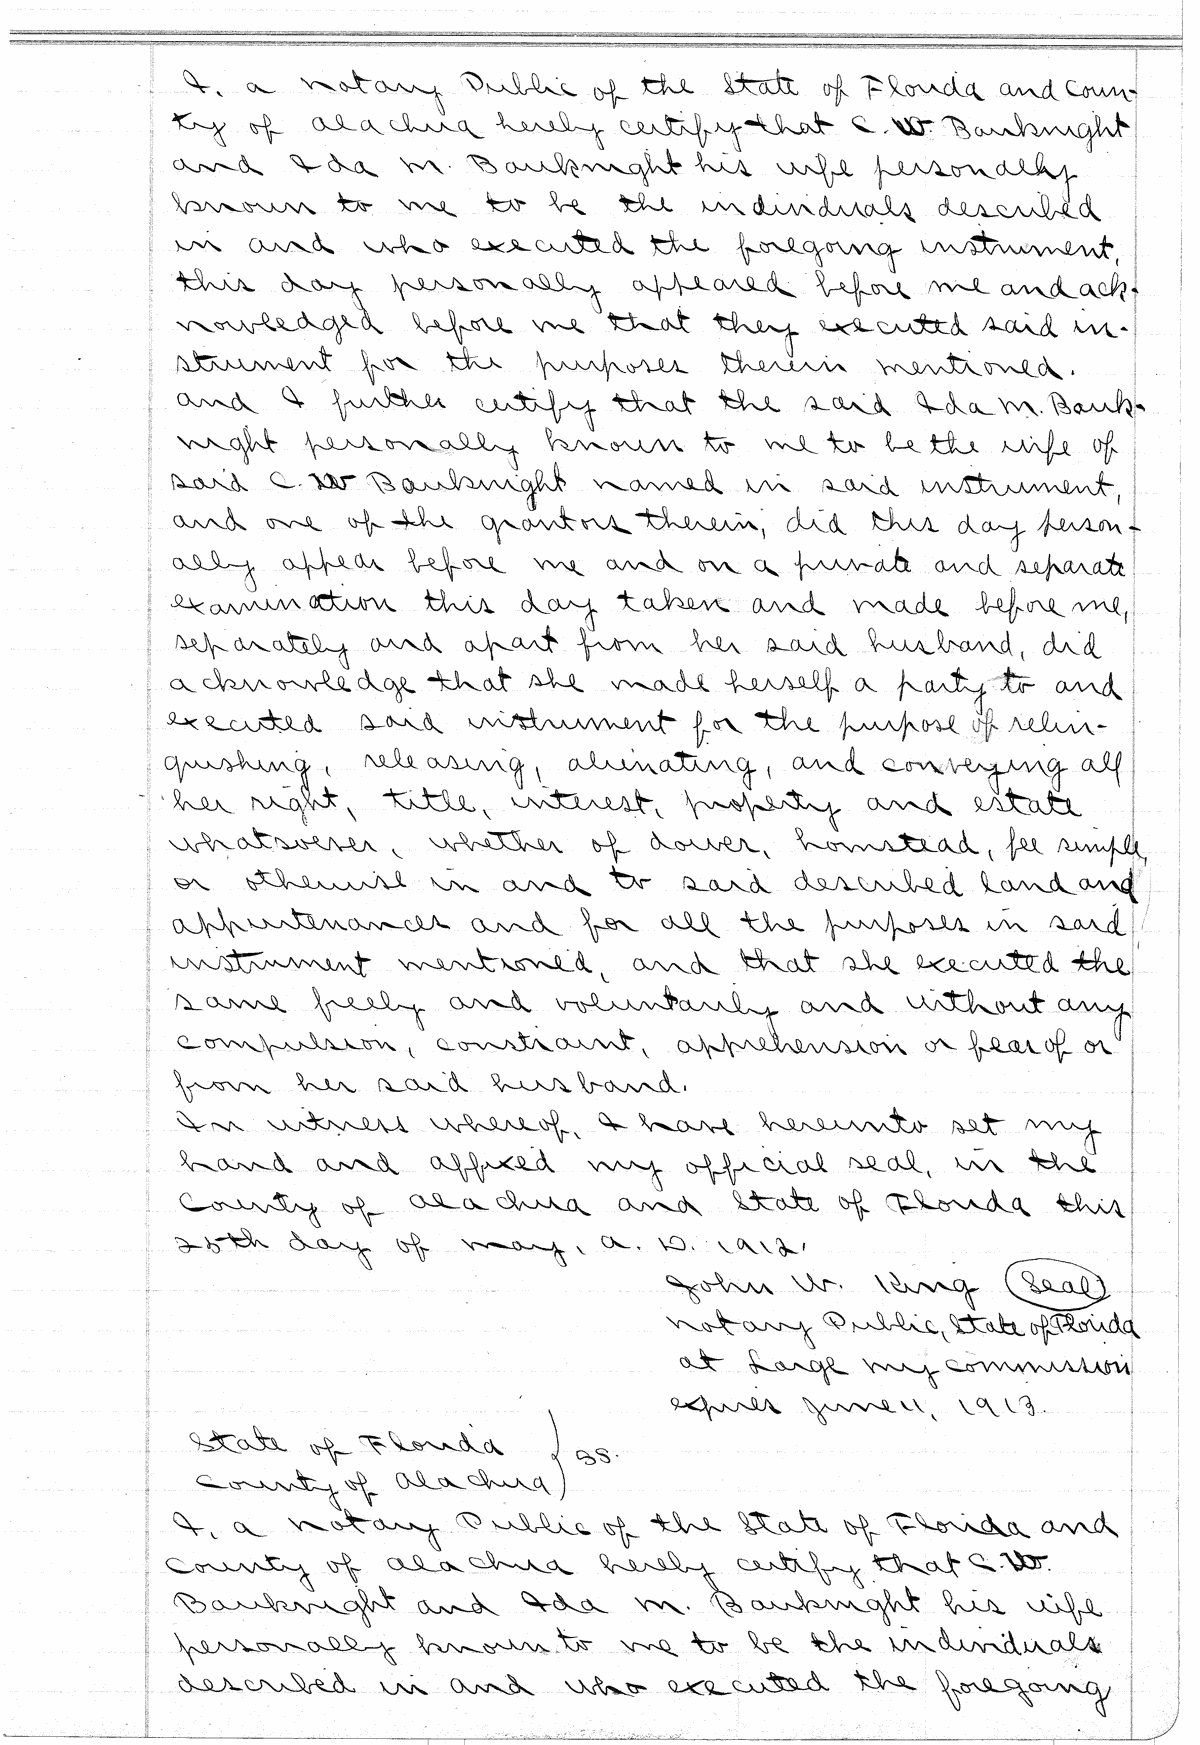 I, a Notary Public of the State of Florida and Coun-
ty of Alachua hereby certify that C. W. Bauknight
and Ida M. Bauknight his wife personally
known to me to be the individuals described
in and who executed the foregoing instrument,
this day personally appeared before me and ack-
nowledged before me that they executed said in-
strument for the purposes therein mentioned.
and I further certify that the said Ida M. Bauk-
night personally known to me to be the wife of
said C. W Bauknight named in said instrument,
and one of the grantors therein, did this day person-
ally appear before me and on a private and separate
examination this day taken and made before me,
separately and apart from her said husband, did
acknowledge that she made herself a party to and
executed said instrument for the purpose of relin-
quishing, releasing, alienating, and conveying all
her right, title, interest, property and estate
whatsoever, whether of dower, homstead, fee simple,
or otherwise in and to said described land and
appurtenances and for all the purposes in said
instrument mentioned, and that she executed the
same freely and voluntarily and without any
compulsion, constraint, apprehension or fear of or
from her said husband.
In witness whereof, I have hereunto set my
hand and affixed my official seal, in the
County of Alachua and State of Florida this
25th day of May, A. D. 1912.
John W. King (Seal)
Notary Public, State of Florida
at Large my commission
expires June 11, 1913.
State of Florida
County of Alachua } ss.
I, a Notary Public of the State of Florida and
County of Alachua hereby certify that C. W.
Bauknight and Ida M. Bauknight his wife
personally known to me to be the individuals
described in and who executed the foregoing